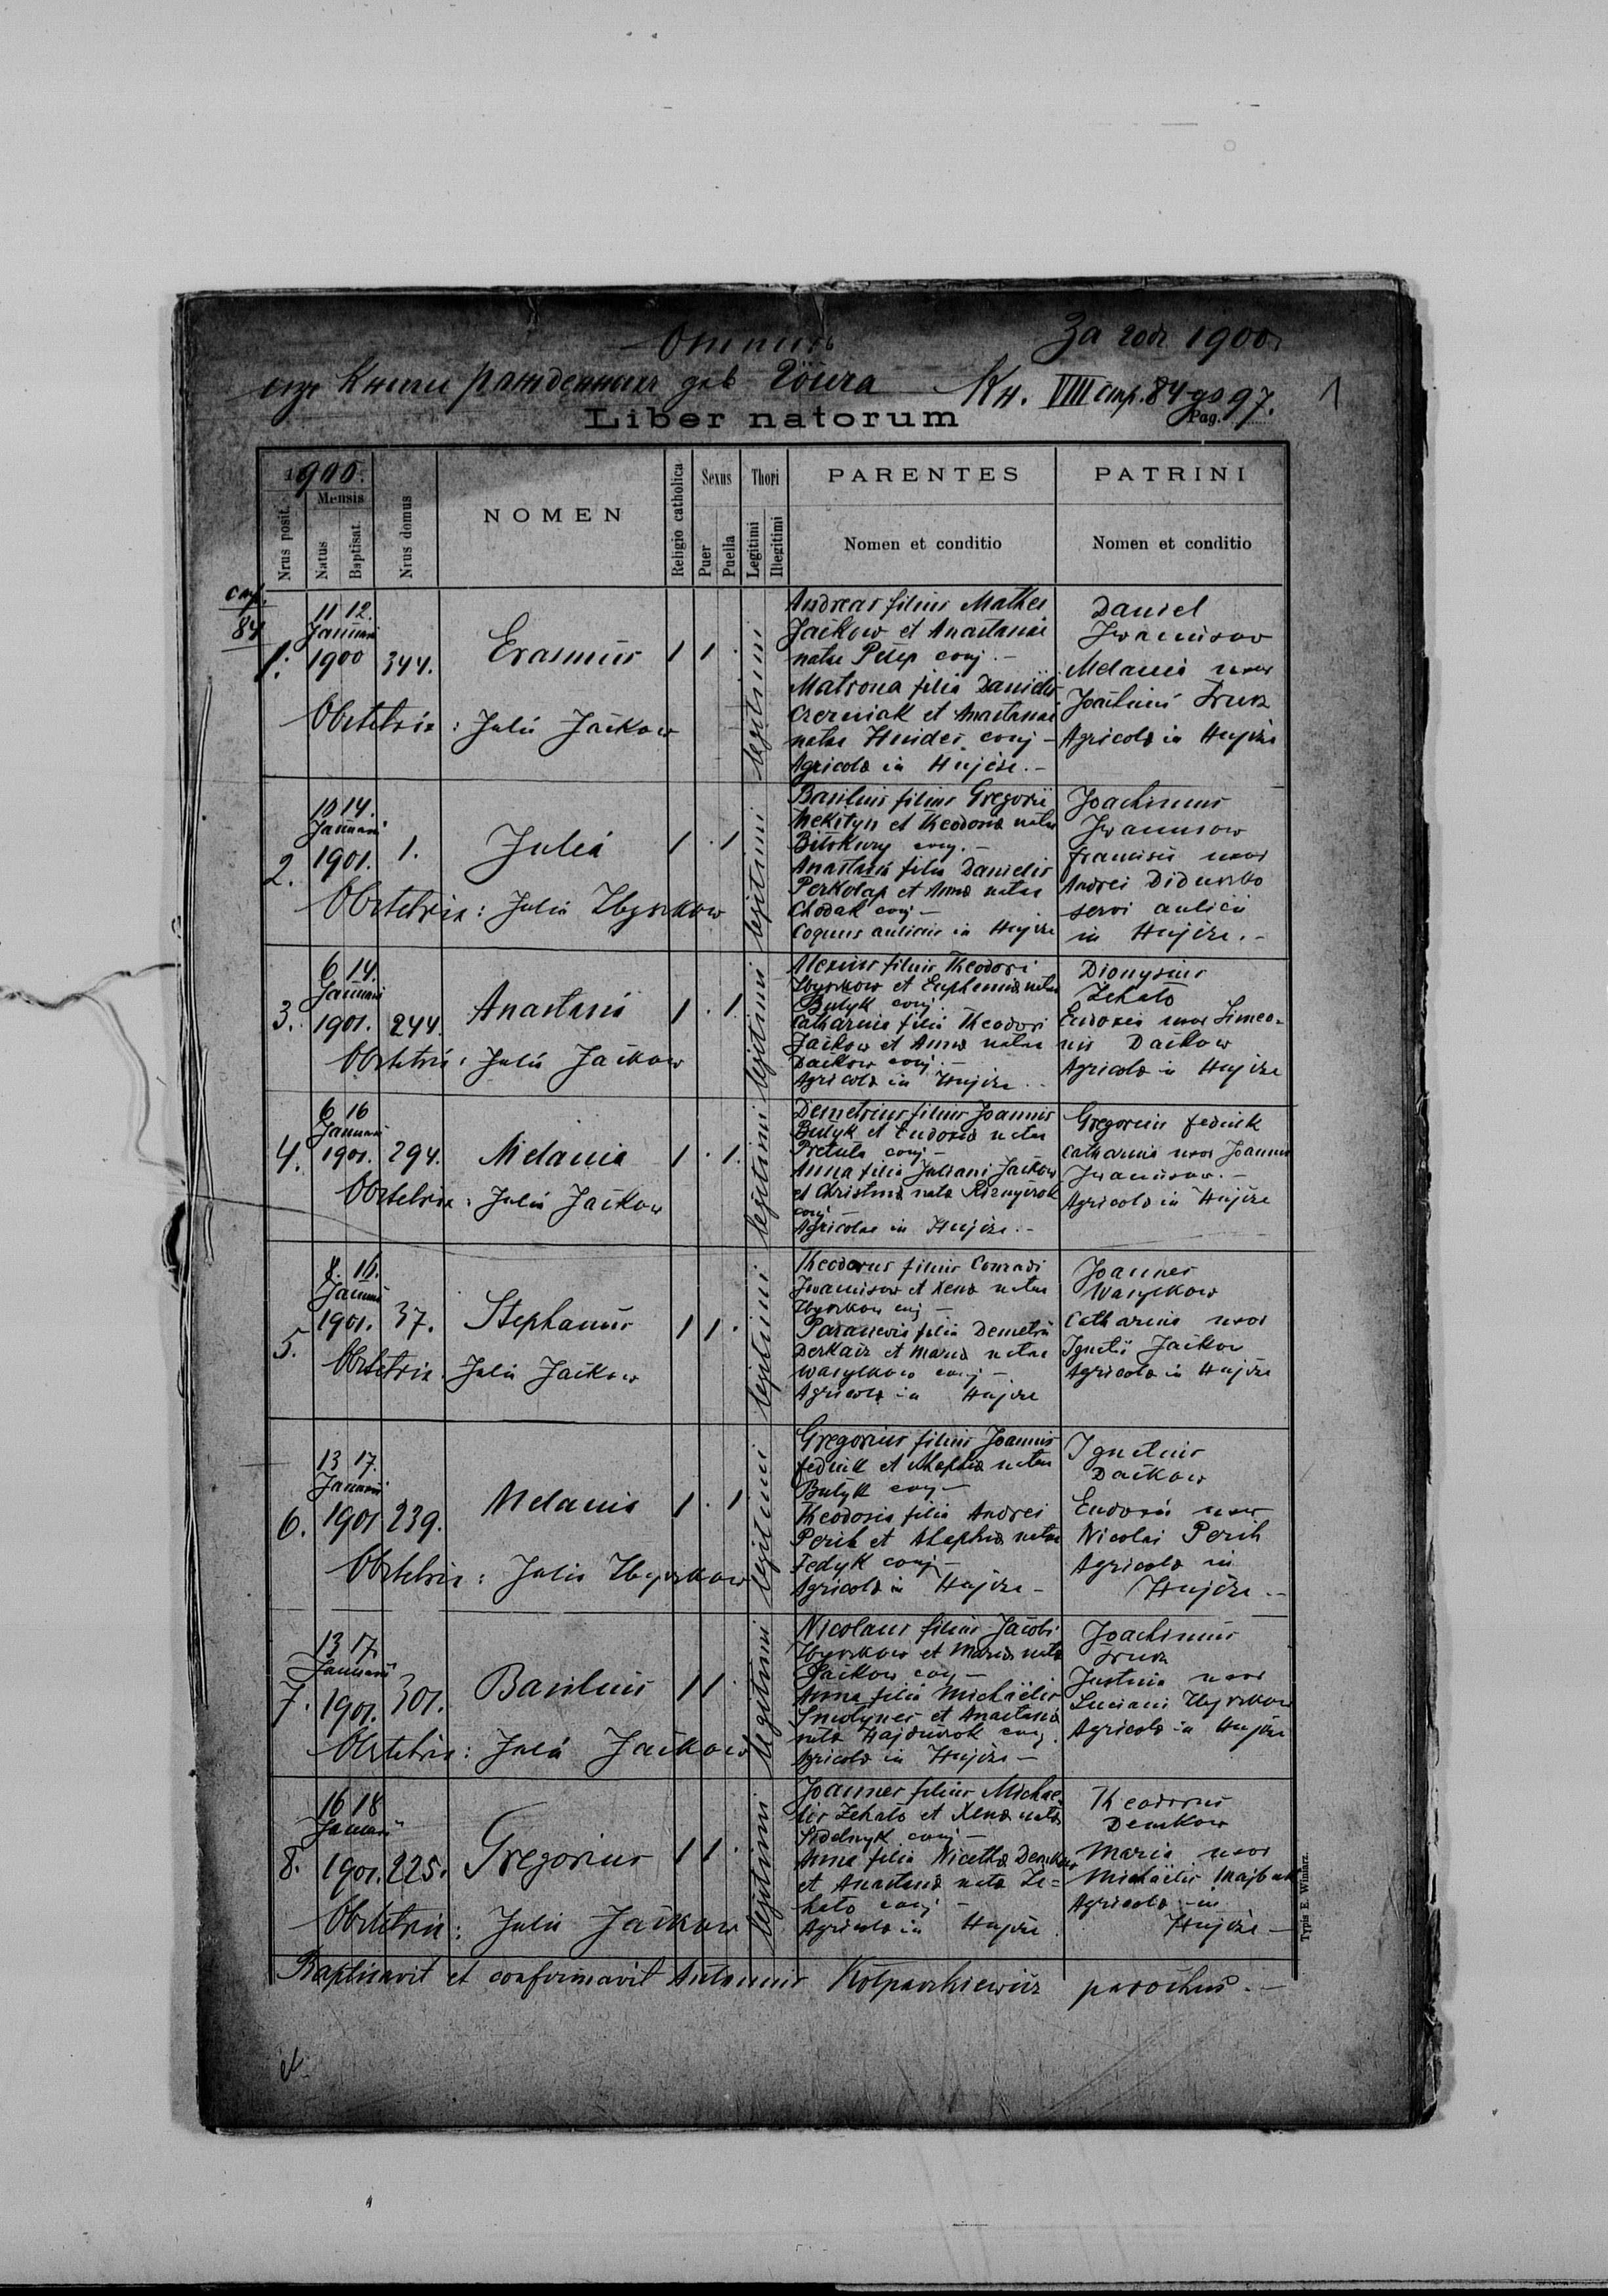 За годъ 1900
изъ Книги
Кн. VIII стр. 84 до 97.
1
Liber natorum
Pag.
1900.
Nrus posit.
Mensis
Natus
Baptisat.
Nrus domus
NOMEN
Religio catholica
Sexus
Puer
Puella
Thori
Legitimi
Illegitimi
PARENTES
Nomen et conditio
PATRINI
Nomen et conditio
стр.
84
1.
11 12.
Januarii
1900
344.
Erasmus
1 1 .
legitimi
Andreas filius Mathei
Jaćkow et Anastasiae
natae conj. —
Matrona filia Danielis
Czerniak et Anastasiae
natae Hnider conj —
Agricolae in Hujcze. —
Daniel
Iwanusow
Melania uxor
Joachimi Fruz
Agricolae in Hujcze
Obstetrix : Julia Jaćkow
2.
10 14.
Januarii
1901.
1.
Julia
1 . 1
legitimi
Basilius filius Gregorii
Mekityn et Theodosiae natae
conj. —
Anastasia filia Danielis
Perkołap et Annae natae
Chodak conj —
Coquus aulicus in Hujcze
Joachimus
Iwanusow
Francisca uxor
Andrei
servi aulici
in Hujcze. —
Obstetrix : Julia Zbyrkow
3.
6 14.
Januarii
1901.
244.
Anastasia
1 . 1
legitimi
Alexius filius Theodori
Zbyrkow et Euphemiae natae
Bulyk conj. —
Catharina filia Theodori
Jaćkow et Annae natae
Daćkow conj. —
Agricolae in Hujcze. —
Dionysius
Zehało
Eudoxia uxor Simeo-
nis Daćkow
Agricolae in Hujcze
Obstetrix : Julia Jaćkow
4.
6 16
Januarii
1901.
294.
Melania
1 . 1.
legitimi
Demetrius filius Joannis
Bulyk et Eudoxiae natae
Pretula conj —
Anna filia Juliani Jaćkow
et Christinae natae
conj —
Agricolae in Hujcze. —
Gregorius Fedink
Catharina uxor Joannis
Iwanusow. —
Agricolae in Hujcze
Obstetrix : Julia Jaćkow
5.
8. 16.
Januarii
1901.
37.
Stephanus
1 1 .
legitimi
Theodorus filius Conradi
Iwanusow et Xeniae natae
Zbyrkow conj —
Parascevia filia Demetrii
Derkacz et Mariae natae
Wasylkow conj —
Agricolae in Hujcze
Joannes
Wasylkow
Catharina uxor
Ignatii Jaćkow
Agricolae in Hujcze
Obstetrix. Julia Jaćkow
6.
13 17.
Januarii
1901
239.
Melania
1 . 1
legitimi
Gregorius filius Joannis
Fedink et natae
Bulyk conj —
Theodosia filia Andrei
Perih et natae
Fedyk conj —
Agricolae in Hujcze —
Ignatius
Daćkow
Eudoxia uxor
Nicolai Perih
Agricolae in
Hujcze —
Obstetrix : Julia Zbyrkow
7.
13 17.
Januarii
1901.
301.
Basilius
1 1 .
legitimi
Nicolaus filius Jacobi
Zbyrkow et Mariae natae
Jaćkow conj —
Anna filia Michaëlis
Smolyneć et Anastasiae
natae conj.
Agricolae in Hujcze —
Joachimus
Fruz
Justina uxor
Luciani Zbyrkow
Agricolae in Hujcze
Obstetrix : Julia Jaćkow
8.
16 18
Januarii
1901.
225.
Gregorius
1 1 .
legitimi
Joannes filius Michae-
lis Zehało et Xeniae natae
conj —
Anna filia Nicetae Demkow
et Anastasiae natae Ze=
hało conj —
Agricolae in Hujcze.
Theodorus
Demkow
Maria uxor
Michaëlis Majbak
Agricolae in
Hujcze —
Obstetrix : Julia Jaćkow
Baptisavit et confirmavit Antonius Kołpaczkiewicz parochus. —
Typis E. Winiarz.